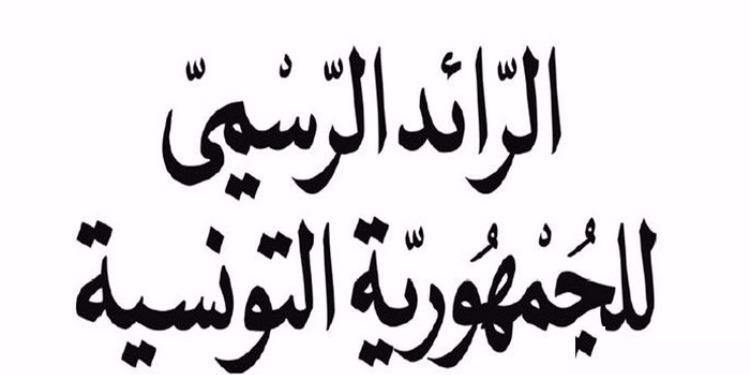 الرّائد الرّسْميّ
للجُمْهُوريّة التونسية